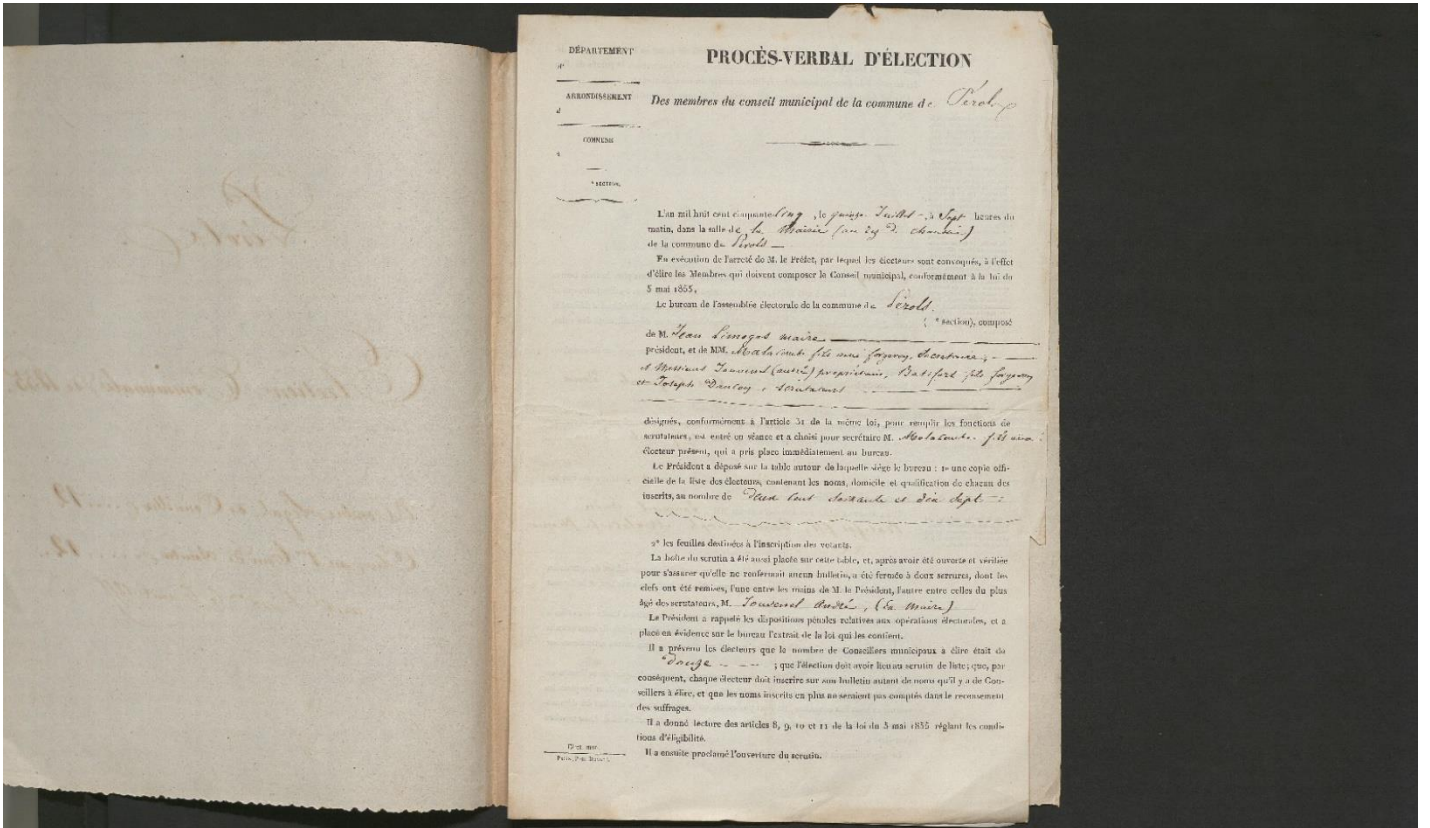 DÉPARTEMENT
d
ARRONDISSEMENT
d
COMMUNE
* SECTION.
PROCÈS-VERBAL D'ÉLECTION
Des membres du conseil municipal de la commune de Pérols
L'an mil huit cent cinquante cinq, le quinze Juillet à Sept heures du
matin, dans la salle de la Mairie (au rez de chaussée)
de la commune de Pérols
En exécution de l'arreté de M. le Préfet, par lequel les électeurs sont convoqués, à l'effet
d'élire les Membres qui doivent composer le Conseil municipal, conformément à la loi du
5 mai 1855,
Le bureau de l'assemblée électorale de la commune de Pérols.
( * section), composé
de M. Jean Limoges maire
président, et de MM. fils ainé forgeron, Secrétaire,
et Messieurs (andré) propriétaire, Batifort fils forgeron
et Joseph , scrutateurs
désignés, conformément à l'article 31 de la même loi, pour remplir les fonctions de
scrutateurs, est entré en séance et a choisi pour secrétaire M. fils ainé
électeur présent, qui a pris place immédiatement au bureau.
Le Président a déposé sur la table autour de laquelle siège le bureau : 1° une copie offi-
cielle de la liste des électeurs, contenant les noms, domicile et qualification de chacun des
inscrits, au nombre de Deux Cent Soixante et dix Sept
2° les feuilles destinées à l'inscription des votants.
La boîte du scrutin a été aussi placée sur cette table, et, après avoir été ouverte et vérifiée
pour s'assurer qu'elle ne renfermait aucun bulletin, a été fermée à deux serrures, dont les
clefs ont été remises, l'une entre les mains de M. le Président, l'autre entre celles du plus
âgé des scrutateurs, M. André,
Le Président a rappelé les dispositions pénales relatives aux opérations électorales, et a
placé en évidence sur le bureau l'extrait de la loi qui les contient.
Il a prévenu les électeurs que le nombre de Conseillers municipaux à élire était de
douze ; que l'élection doit avoir lieu au scrutin de liste; que, par
conséquent, chaque électeur doit inscrire sur son bulletin autant de noms qu'il y a de Con-
seillers à élire, et que les noms inscrits en plus ne seraient pas comptés dans le recensement
des suffrages.
Il a donné lecture des articles 8, 9, 10 et 11 de la loi du 5 mai 1855 réglant les condi-
tions d'éligibilité.
Il a ensuite proclamé l'ouverture du scrutin.